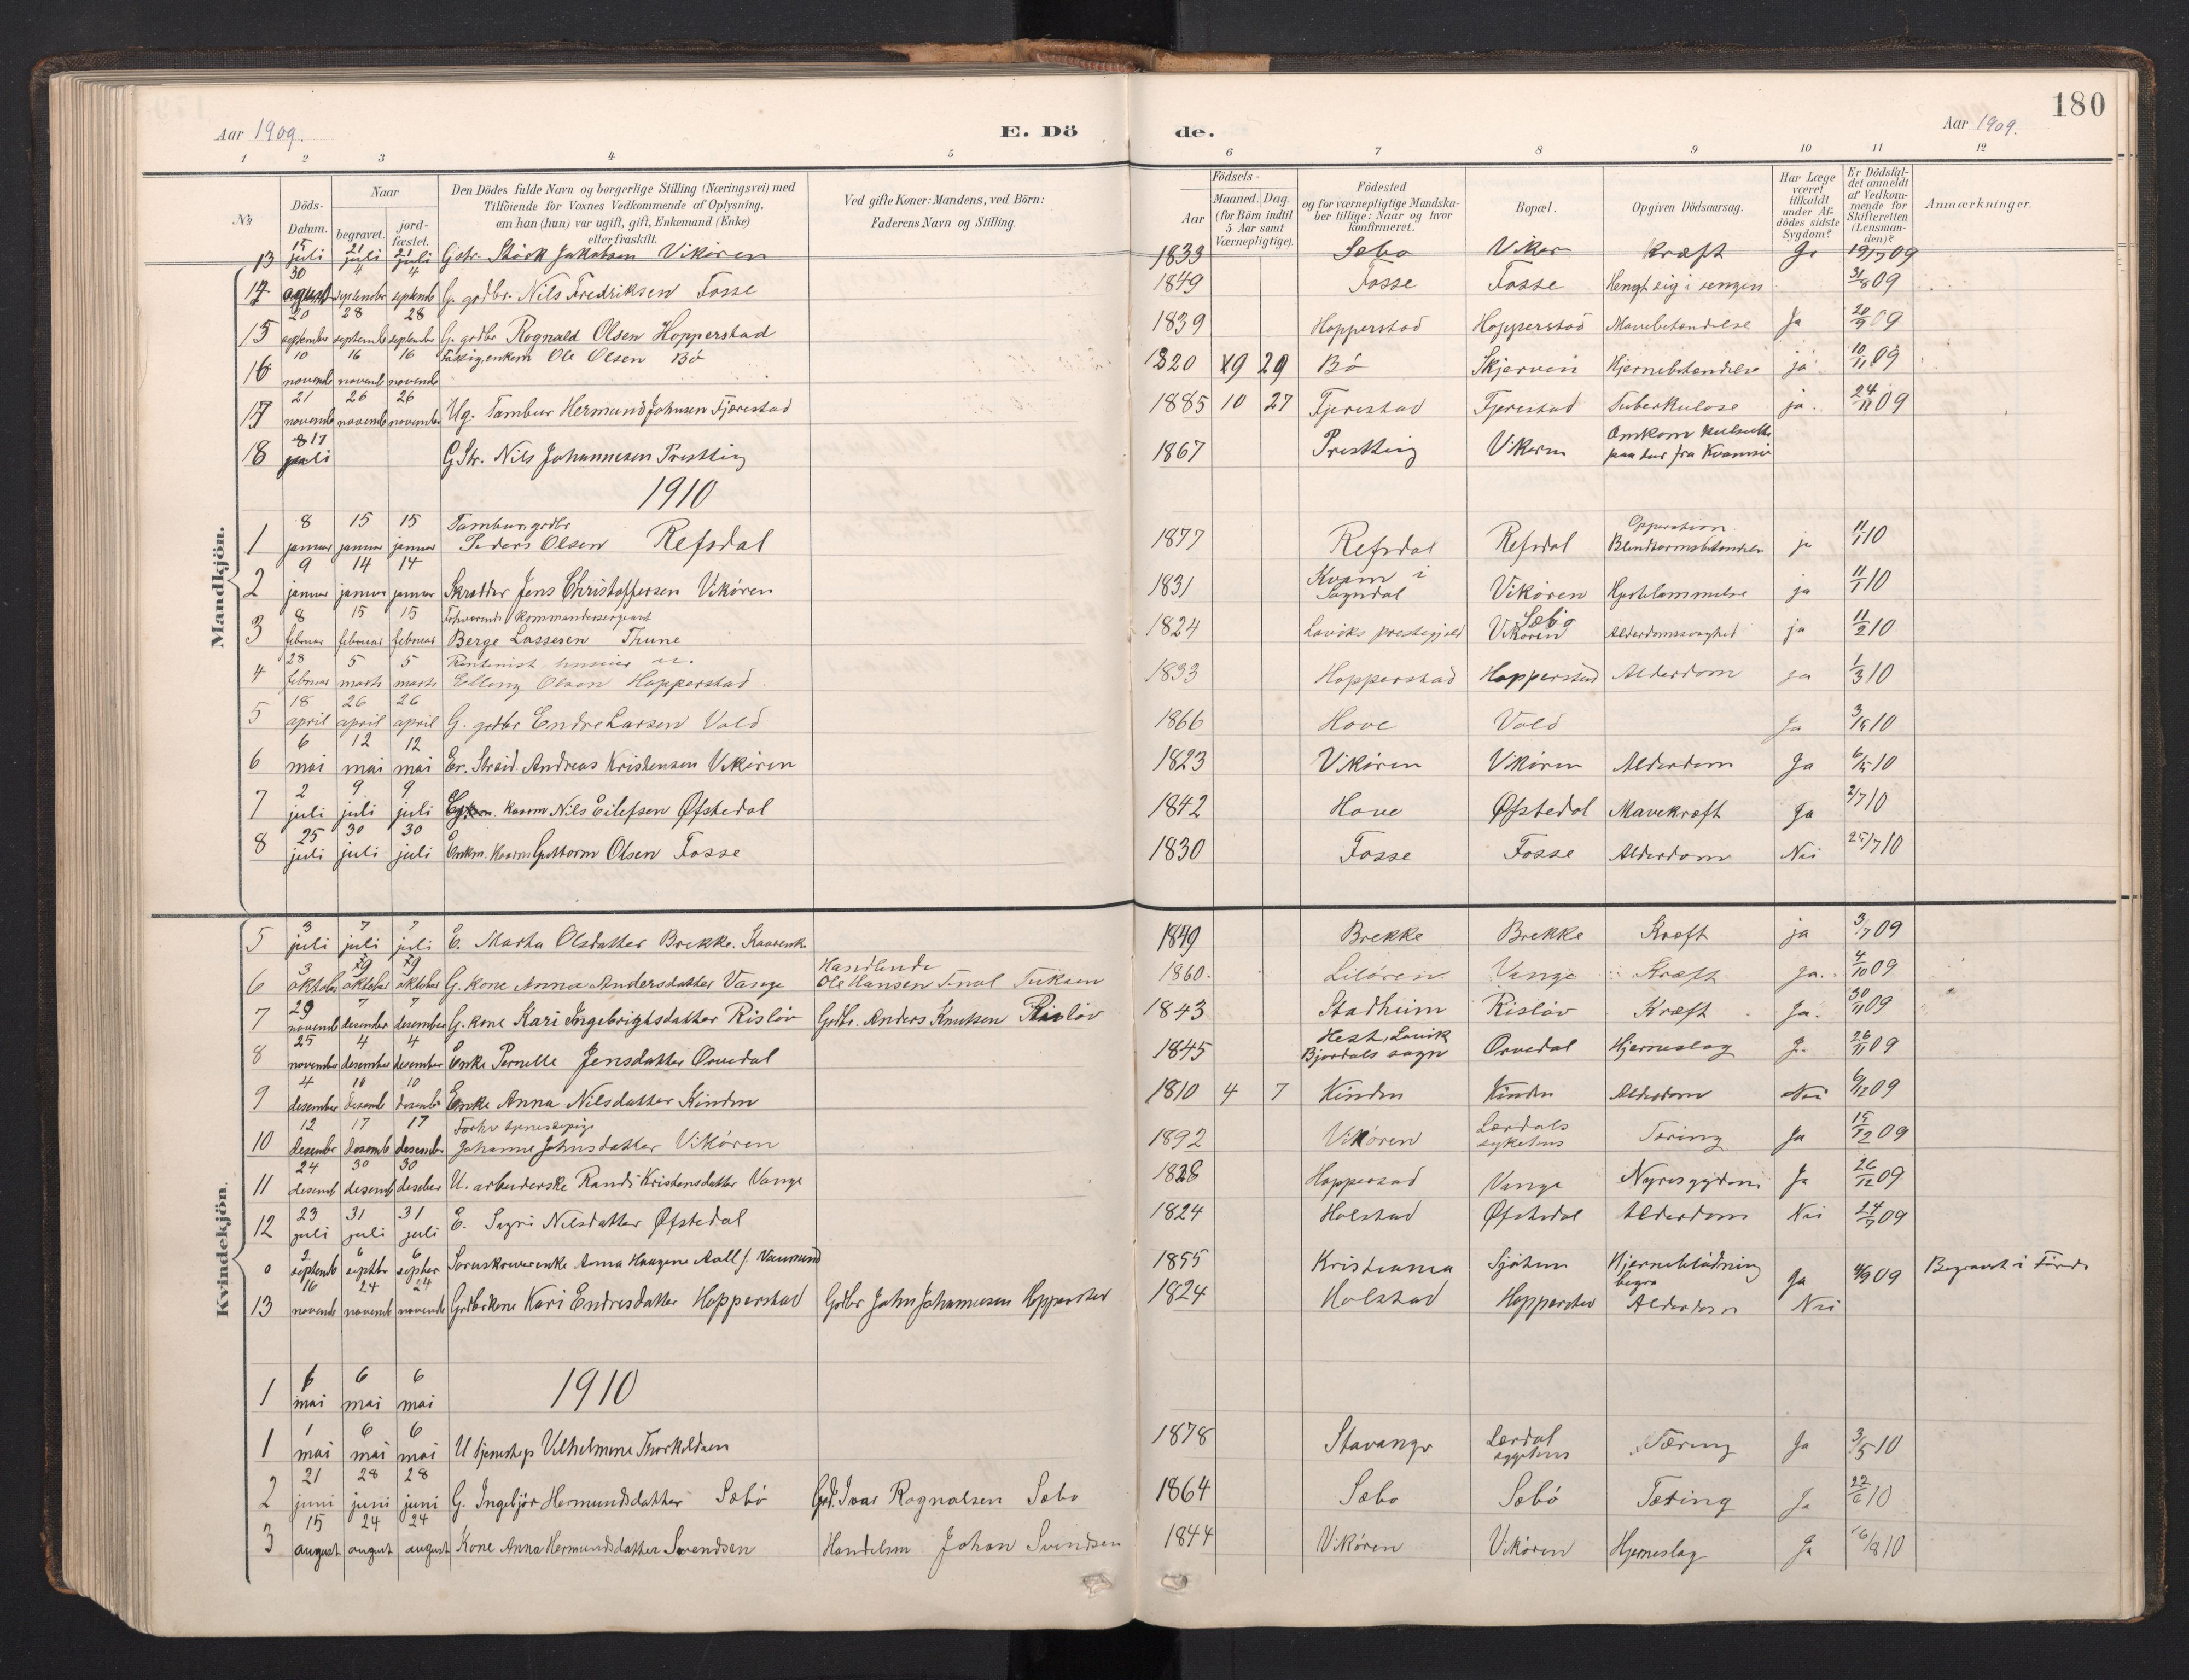 180
Aar 1909.
E. Dö
de.
Aar 1909.
1 2 3 4 5 6 7 8 9 10 11 12
No
Döds-Datum.
Naar
begravet.
jord-fæstet.
Den Dödes fulde Navn og borgerlige Stilling (Næringsvei) med
Tilföiende for Voxnes Vedkommende af Oplysning,
om han (hun) var ugift, gift, Enkemand (Enke)
eller fraskilt.
Ved gifte Koner: Mandens, ved Börn:
Faderens Navn og Stilling.
Födsels-
Aar
Maaned. Dag.
(for Börn indtil
5 Aar samt
Værnepligtige).
Födested
og for værnepligtige Mandska-
ber tillige: Naar og hvor
konfirmeret.
Bopæl.
Opgiven Dödsaarsag.
Har Læge
været
tilkaldt
under Af-
dödes sidste
Sygdom?
Er Dödsfal-
det anmeldt
af Vedkom-
mende for
Skifteretten
(Lensman-
den)?
Anmærkninger.
Mandkjön.
13 15 juli 21 juli 21 juli Jakobsen Vikøren 1833 Sæbo Vikør Kræft Ja 19/7 09
14 30 4 september 4 septemb G. grdbr. Nils Fredriksen Fosse 1849 Fosse Fosse Hengt sig i sengen 31/8 09
15 20 september 28 septemb 28 september G. grdbr Rognald Olsen Hopperstad 1839 Hopperstad Hopperstad Mavebetændelse Ja 20/9 09
16 10 novemb 16 novemb 16 novemb Ole Olsen Bö 1820 29 Bö Skjerven Hjernebetændelse ja 10/11 09
17 21 novemb 26 novemb 26 november Ug. Tambur Hermund Johnsen Fjærestad 1885 10 27 Fjerestad Fjerestad Tuberkulose ja. 24/11 09
18 17 juli G Str. Nils Johannesen Prestting 1867 Prestting Vikøren Omkom
paa tur fra Kvamsö
1910
1 8 januar 15 januar 15 januar Tambur, grdbr
Peders Olsen Refsdal 1877 Refsdal Refsdal Opperation
Blindtarmsbetændelse ja 11/1 10
2 9 januar 14 januar 14 januar Skrædder Jens Christoffersen Vikøren 1831 Kvam i
Sogndal Vikøren Hjertelammelse ja 11/1 10
3 8 februar 15 februar 15 februar Forhværende kommandersergeant
Berge Lassesen Thune 1824 Laviks prestegjeld Sæbø
Vikøren Alderdomssvaghed ja 11/2 10
4 28 februar 5 marts 5 marts
Elling Olsen Hopperstad 1833 Hopperstad Hopperstad Alderdom ja 1/3 10
5 18 april 26 april 26 april G. grdbr Endre Larsen Vold 1866 Hove Vold Ja 10
6 6 mai 12 mai 12 mai Andreas Kristensen Vikøren 1823 Vikøren Vikøren Alderdom Ja 6/5 10
7 2 juli 9 juli 9 juli Kaarm Nils Eilefsen Øfstedal 1842 Hove Øfstedal Mavekræft Ja 2/7 10
8 25 juli 30 juli 30 juli Enkm. Kaarm Guttorm Olsen Fosse 1830 Fosse Fosse Alderdom Nei 25/7 10
Kvindekjön.
5 3 juli 7 juli 7 juli E. Marta Olsdatter Brekke. Kaarenke 1849 Brekke Brekke Kræft ja 3/7 09
6 3 oktober 9 oktober 9 oktober G. kone Anna Andersdatter Vange Handlende
Ole Hansen 1860. Liløren Vange Kræft Ja. 4/10 09
7 29 novemb 7 desember 7 desember G. kone Kari Ingebrigtsdatter Risløv Grdbr. Anders Knutsen Risløv 1843 Stadheim Risløv Kræft Ja. 30/11 09
8 25 november 4 desember 4 desember Enke Pernelle Jensdatter Orvedal 1845 Hest, Lavik
Bjordals sogn Orvedal Hjerneslag Ja 26/11 09
9 4 desember 10 desemb 10 desember Enke Anna Nilsdatter Kinden 1810 4 7 Kinden Kinden Alderdom Nei 6/12 09
10 12 desember 17 desemb 17 desember Forhv tjenestepige
Johanne Johnsdatter Vikøren 1892 Vikøren Lærdals
sykehus Tæring Ja 15/12 09
11 24 desemb 30 desemb 30 desember U. arbeiderske Randi Kristensdatter Vange 1828 Hopperstad Vange Nyresygdom Ja 26/12 09
12 23 juli 31 juli 31 juli E. Sigri Nilsdatter Øfstedal 1824 Holstad Øfstedal Alderdom Nei 24/7 09
0 2 septemb 6 septbr 6 septber Sorenskriverenke Anna Haagine Aall f. 1855 Kristiania Hjerneblødning
Ja 4/9 09 Begravet i Førde
13 16 novemb 24 novemb 24 novemb Grdbrkone Kari Endresdatter Hopperstad Grdbr John Johannesen Hopperstad 1824 Holstad Hopperstad Alderdom Nei
1 6 mai 6 mai 6 mai 1910
1 1 mai 6 mai 6 mai U tjenestep Vilhelmine Thorkildsen 1878 Stavanger Lærdal
sygehus Tæring Ja 3/5 10
2 21 juni 28 juni 28 juni G. Ingebjør Hermundsdatter Sæbö Grd. Ivar Rognalsen Sæbo 1864 Sæbo Sæbö Tæring Ja 22/6 10
3 15 august 24 august 24 august Kone Anna Hermundsdatter Svendsen Handelsm Johan Svendsen 1844 Vikøren Vikøren Hjerneslag Ja 16/8 10